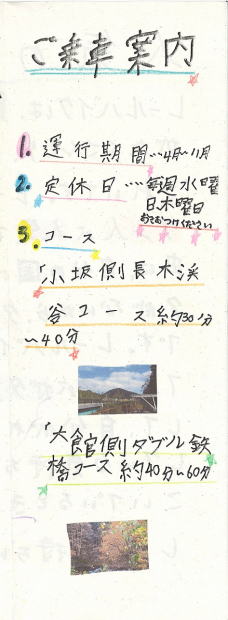 ご乗車案内
1. 運行期間…4月〜11月
2. 定休日…毎週水曜
日木曜日
お気をつけください
3. コース
「小坂側長木渓
谷コース 約30分
〜40分
「大館側ダブル鉄
橋コース 約40分〜60分